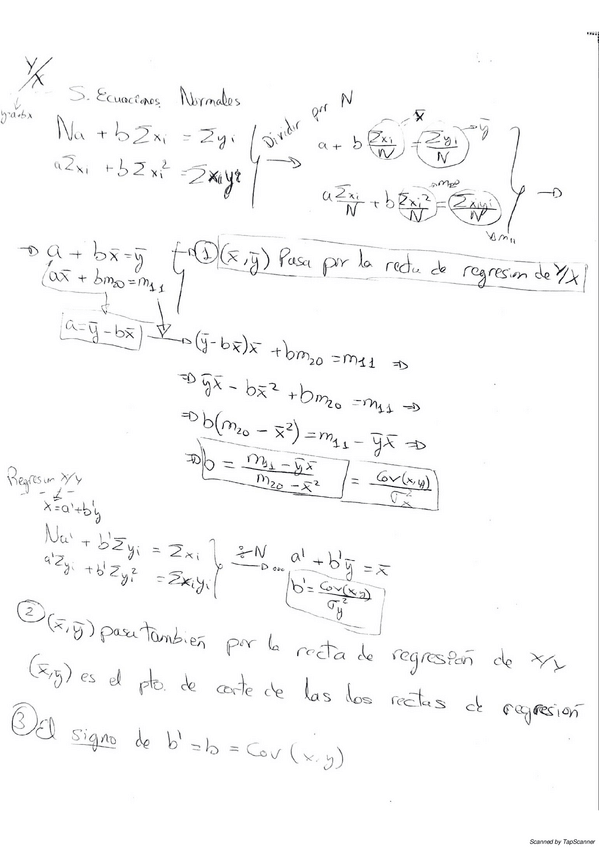 Y/X
y=a+bx
S. Ecuaciones Normales
Na + bΣxi = Σyi
aΣxi + bΣxi² = Σxiyi
Dividir por N
a + b Σxi/N = Σyi/N
x̄
ȳ
aΣxi/N + bΣxi²/N = Σxiyi/N
m20
m11
⇒ a + bx̄ = ȳ
ax̄ + bm20 = m11
① (x̄,ȳ) Pasa por la recta de regresion de Y/X
a = ȳ - bx̄
(ȳ - bx̄)x̄ + bm20 = m11 ⇒
⇒ ȳx̄ - bx̄² + bm20 = m11 ⇒
⇒ b(m20 - x̄²) = m11 - ȳx̄ ⇒
⇒ b = (m11 - ȳx̄)/(m20 - x̄²) = Cov(x,y)/σx²
Regresion X/Y
x=a'+b'y
Na' + b'Σyi = Σxi
a'Σyi + b'Σyi² = Σxiyi
÷N
a' + b'ȳ = x̄
b' = Cov(x,y)/σy²
② (x̄,ȳ) pasa también por la recta de regresión de X/Y
(x̄,ȳ) es el pto. de corte de las los rectas de regresión
③ El signo de b' = b = Cov(x,y)
Scanned by TapScanner